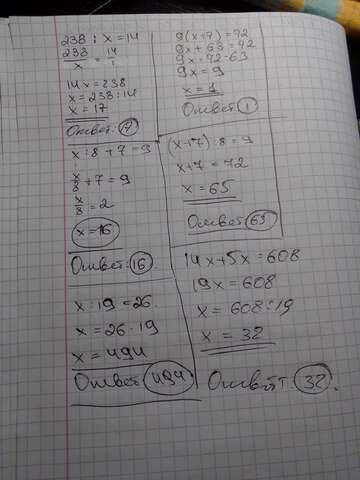 238 : x = 14
238/x = 14/1
14x = 238
x = 238 : 14
x = 17
Ответ: 17
9(x+7) = 72
9x + 63 = 72
9x = 72 - 63
9x = 9
x = 1
Ответ: 1
x : 8 + 7 = 9
x/8 + 7 = 9
x/8 = 2
x = 16
Ответ: 16.
(x+7) : 8 = 9
x + 7 = 72
x = 65
Ответ: 65
x : 19 = 26
x = 26 · 19
x = 494
Ответ: 494
14x + 5x = 608
19x = 608
x = 608 : 19
x = 32
Ответ: 32.